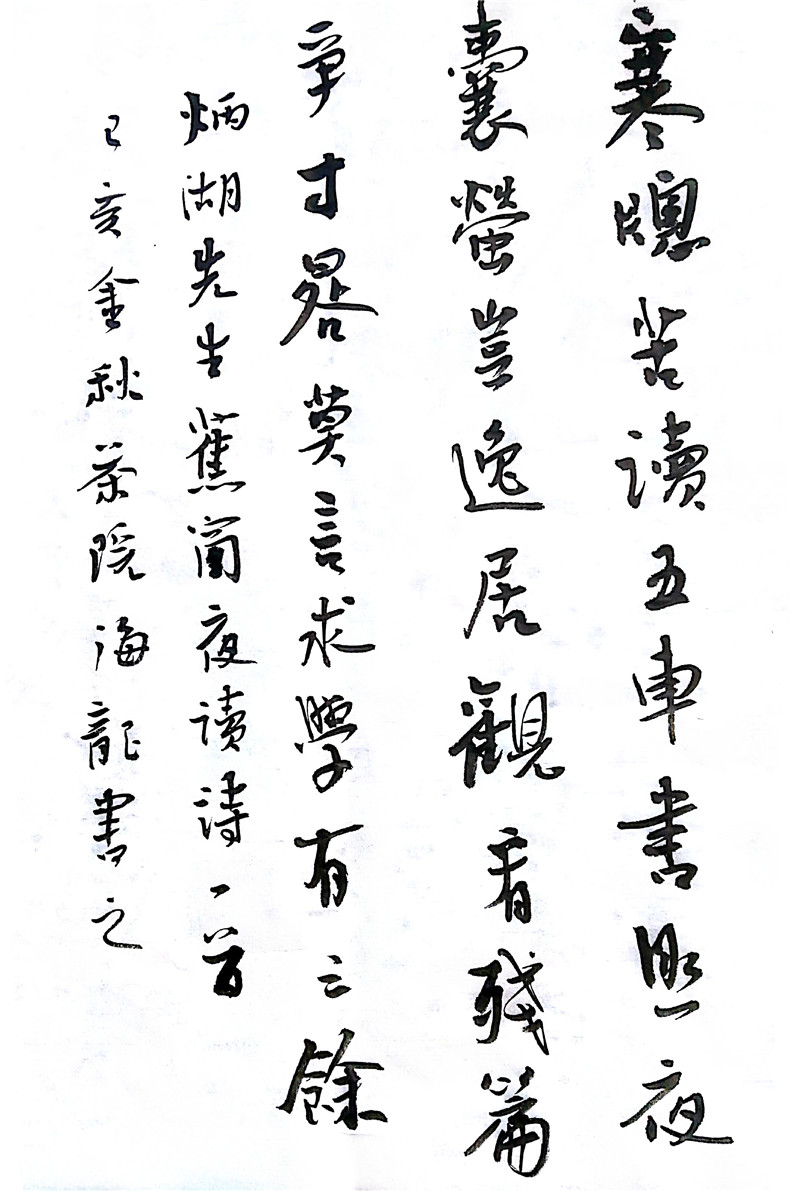 寒牕苦讀五車書照夜
囊螢豈逸居觀看殘篇
爭寸晷莫言求學有三餘
炳湖先生蕉窗夜讀詩一首
己亥金秋茶院海龍書之